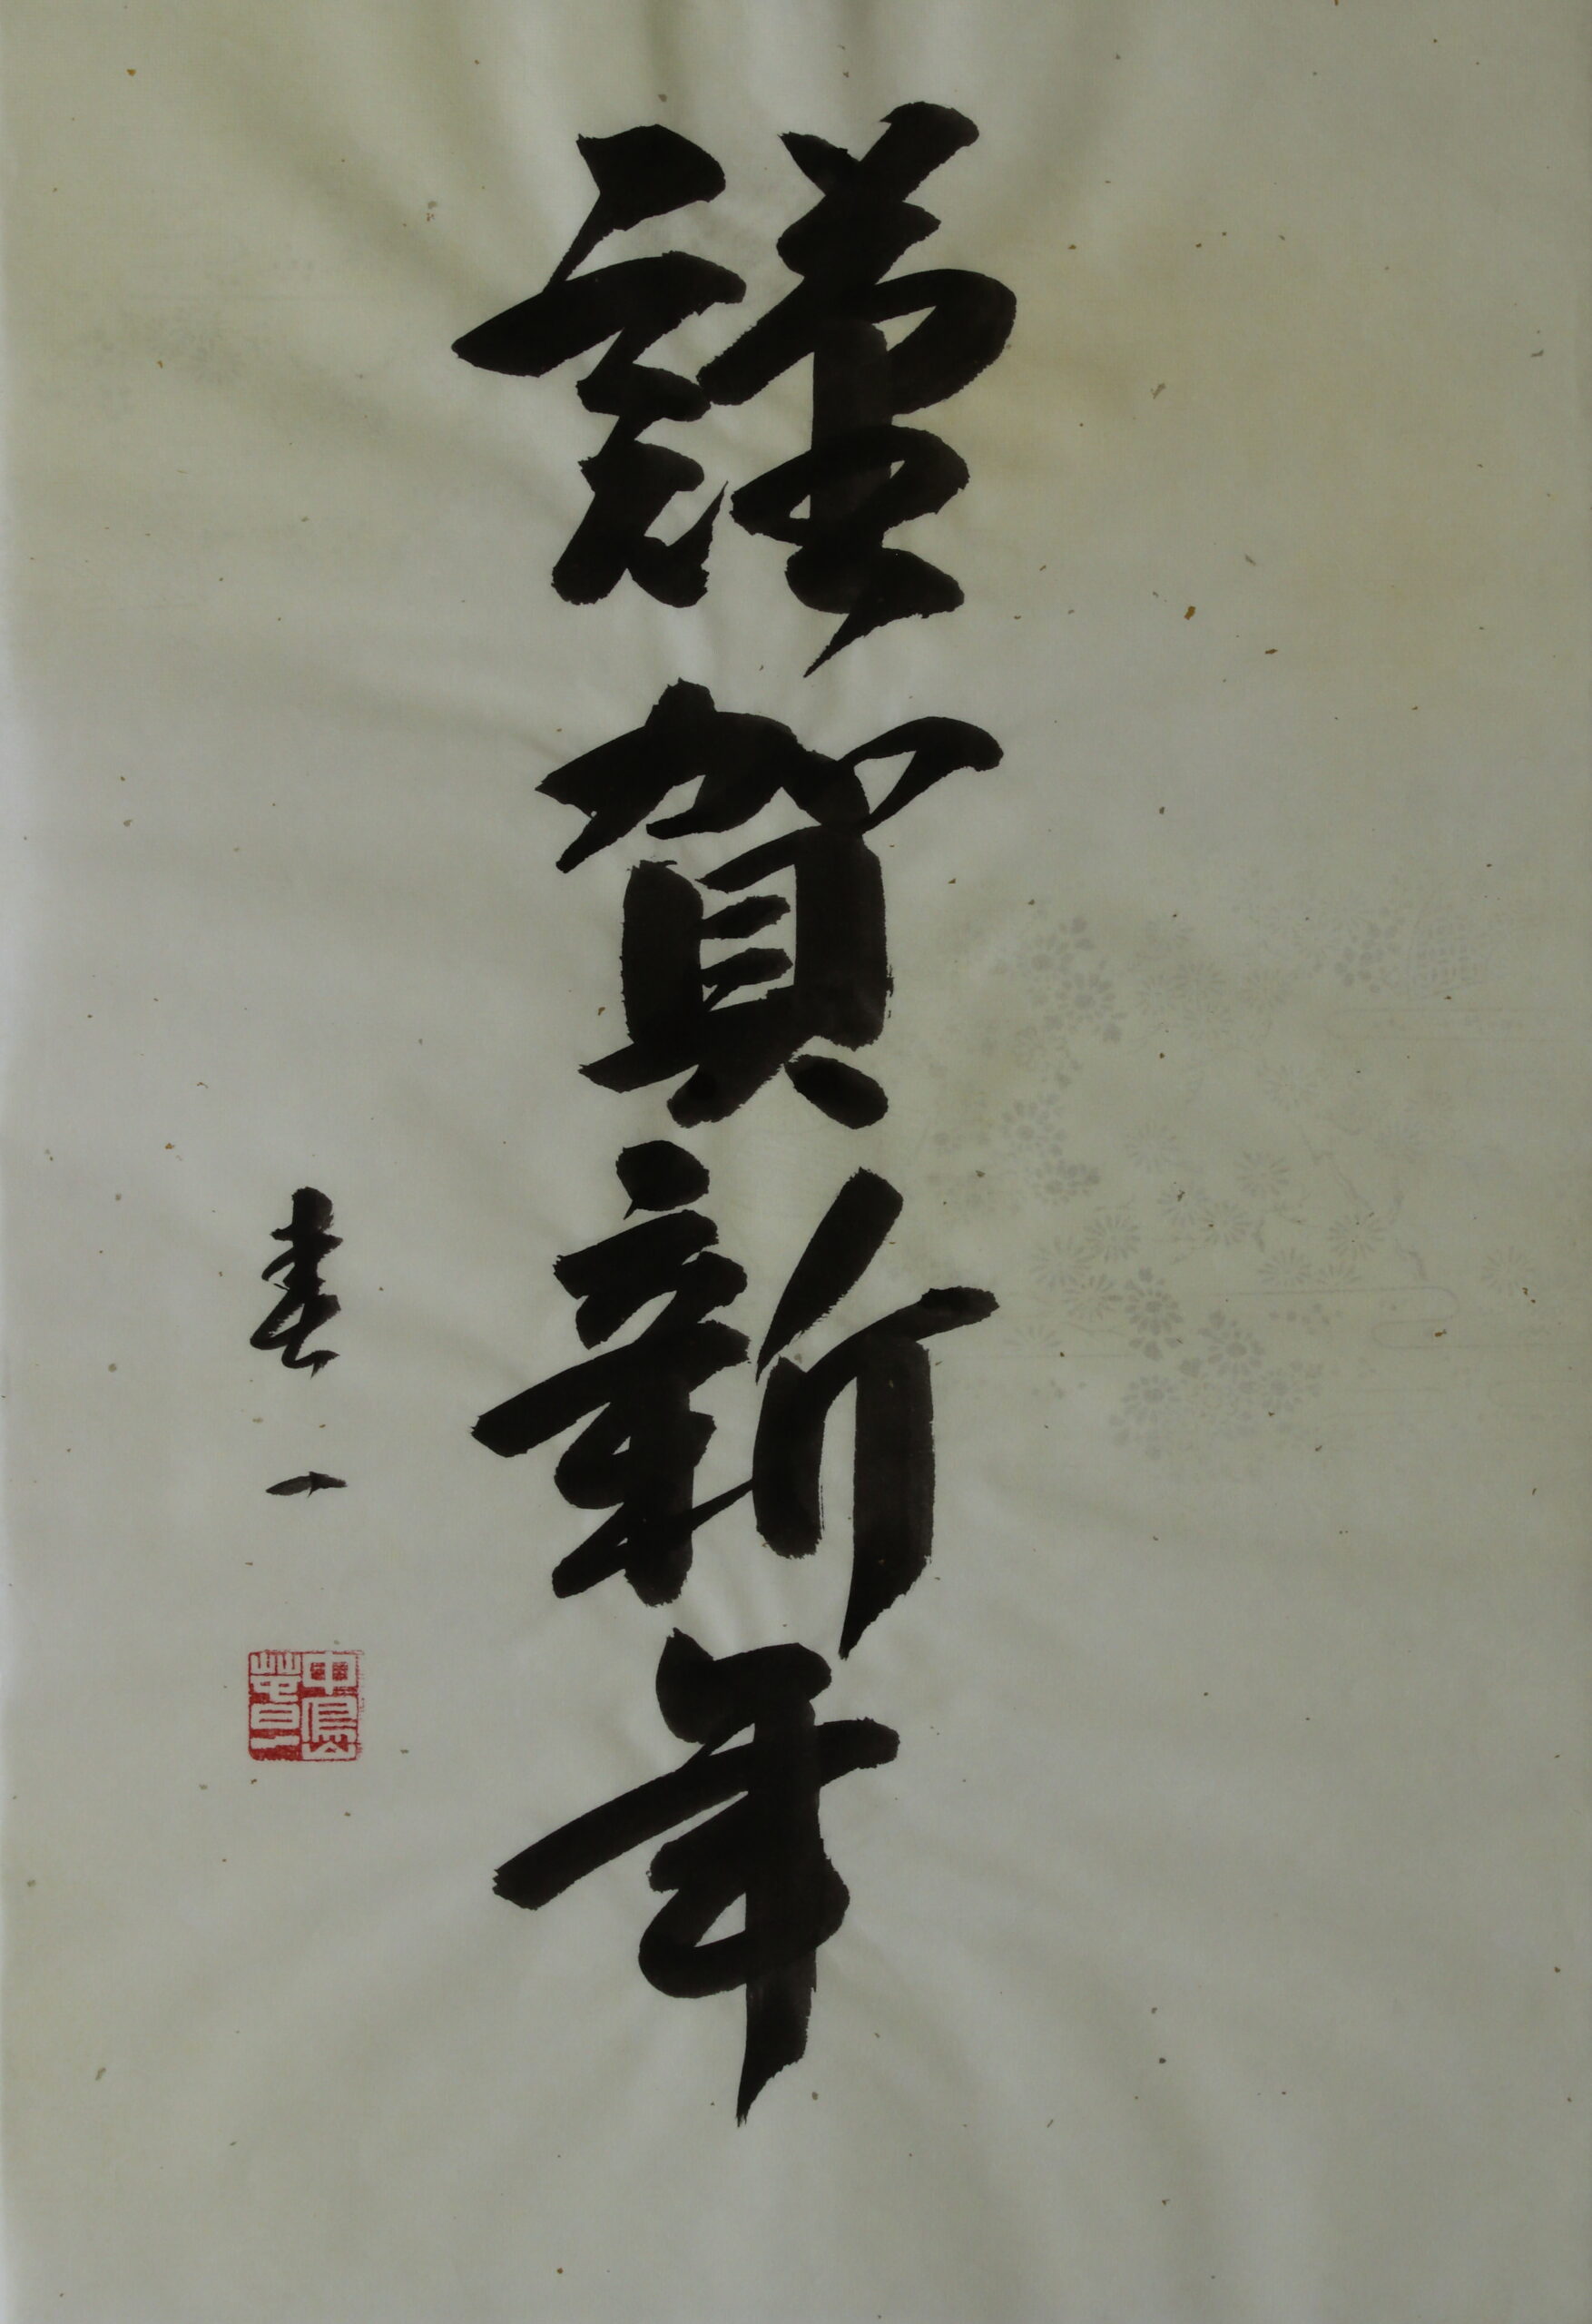 謹賀新年
春一
中島
春一